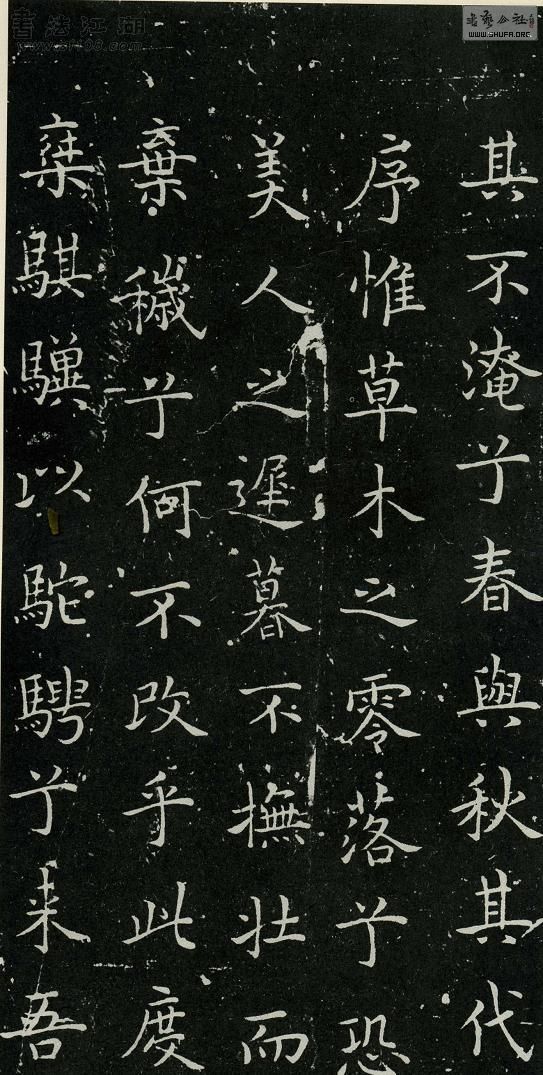 其不淹兮春與秋其代
序惟草木之零落兮恐
美人之遲暮不撫壯而
棄穢兮何不改乎此度
椉騏驥以駝騁兮来吾
書法江湖
www.sf108.com
書藝公社
WWW.SHUFA.ORG